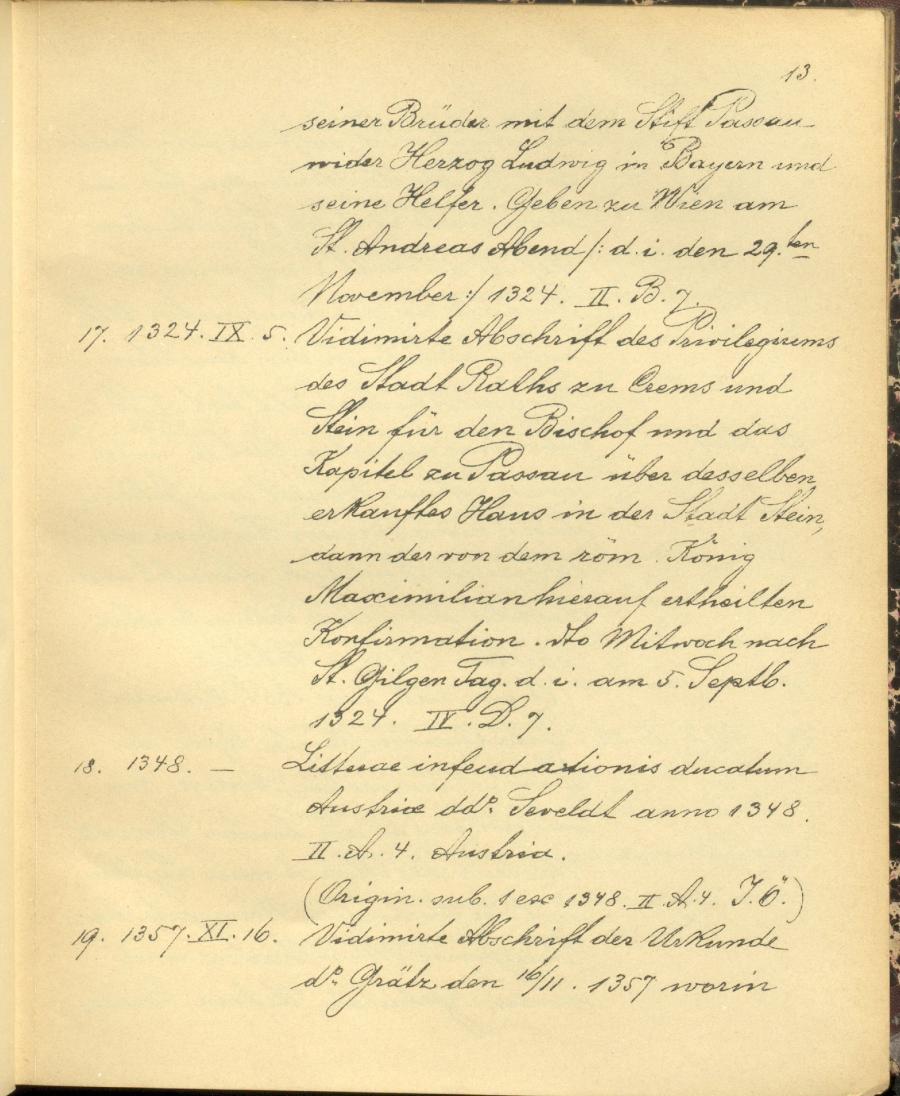 13.
seiner Brüder mit dem Stift Passau
wider Herzog Ludwig in Bayern und
seine Helfer. Geben zu Wien am
St. Andreas Abend /: d. i. den 29.ten
November :/ 1324. II. B. 7.
17. 1324. IX. 5. Vidimirte Abschrift des Privilegiums
des Stadt Raths zu Crems und
Stein für den Bischof und das
Kapitel zu Passau über desselben
erkauftes Haus in der Stadt Stein,
dann der von dem röm. König
Maximilian hierauf ertheilten
Konfirmation. dto Mitwoch nach
St. Gilgen Tag. d. i. am 5. Septb.
1324. IV. D. 7.
18. 1348. — Litterae infeudationis ducatum
Austriae ddo. Seveldt anno 1348.
II. A. 4. Austria.
(Origin. sub. 1 ex 1348. II. A. 4. I. Ö.)
19. 1357. XI. 16. Vidimirte Abschrift der Urkunde
do. Grätz den 16/11. 1357 worin